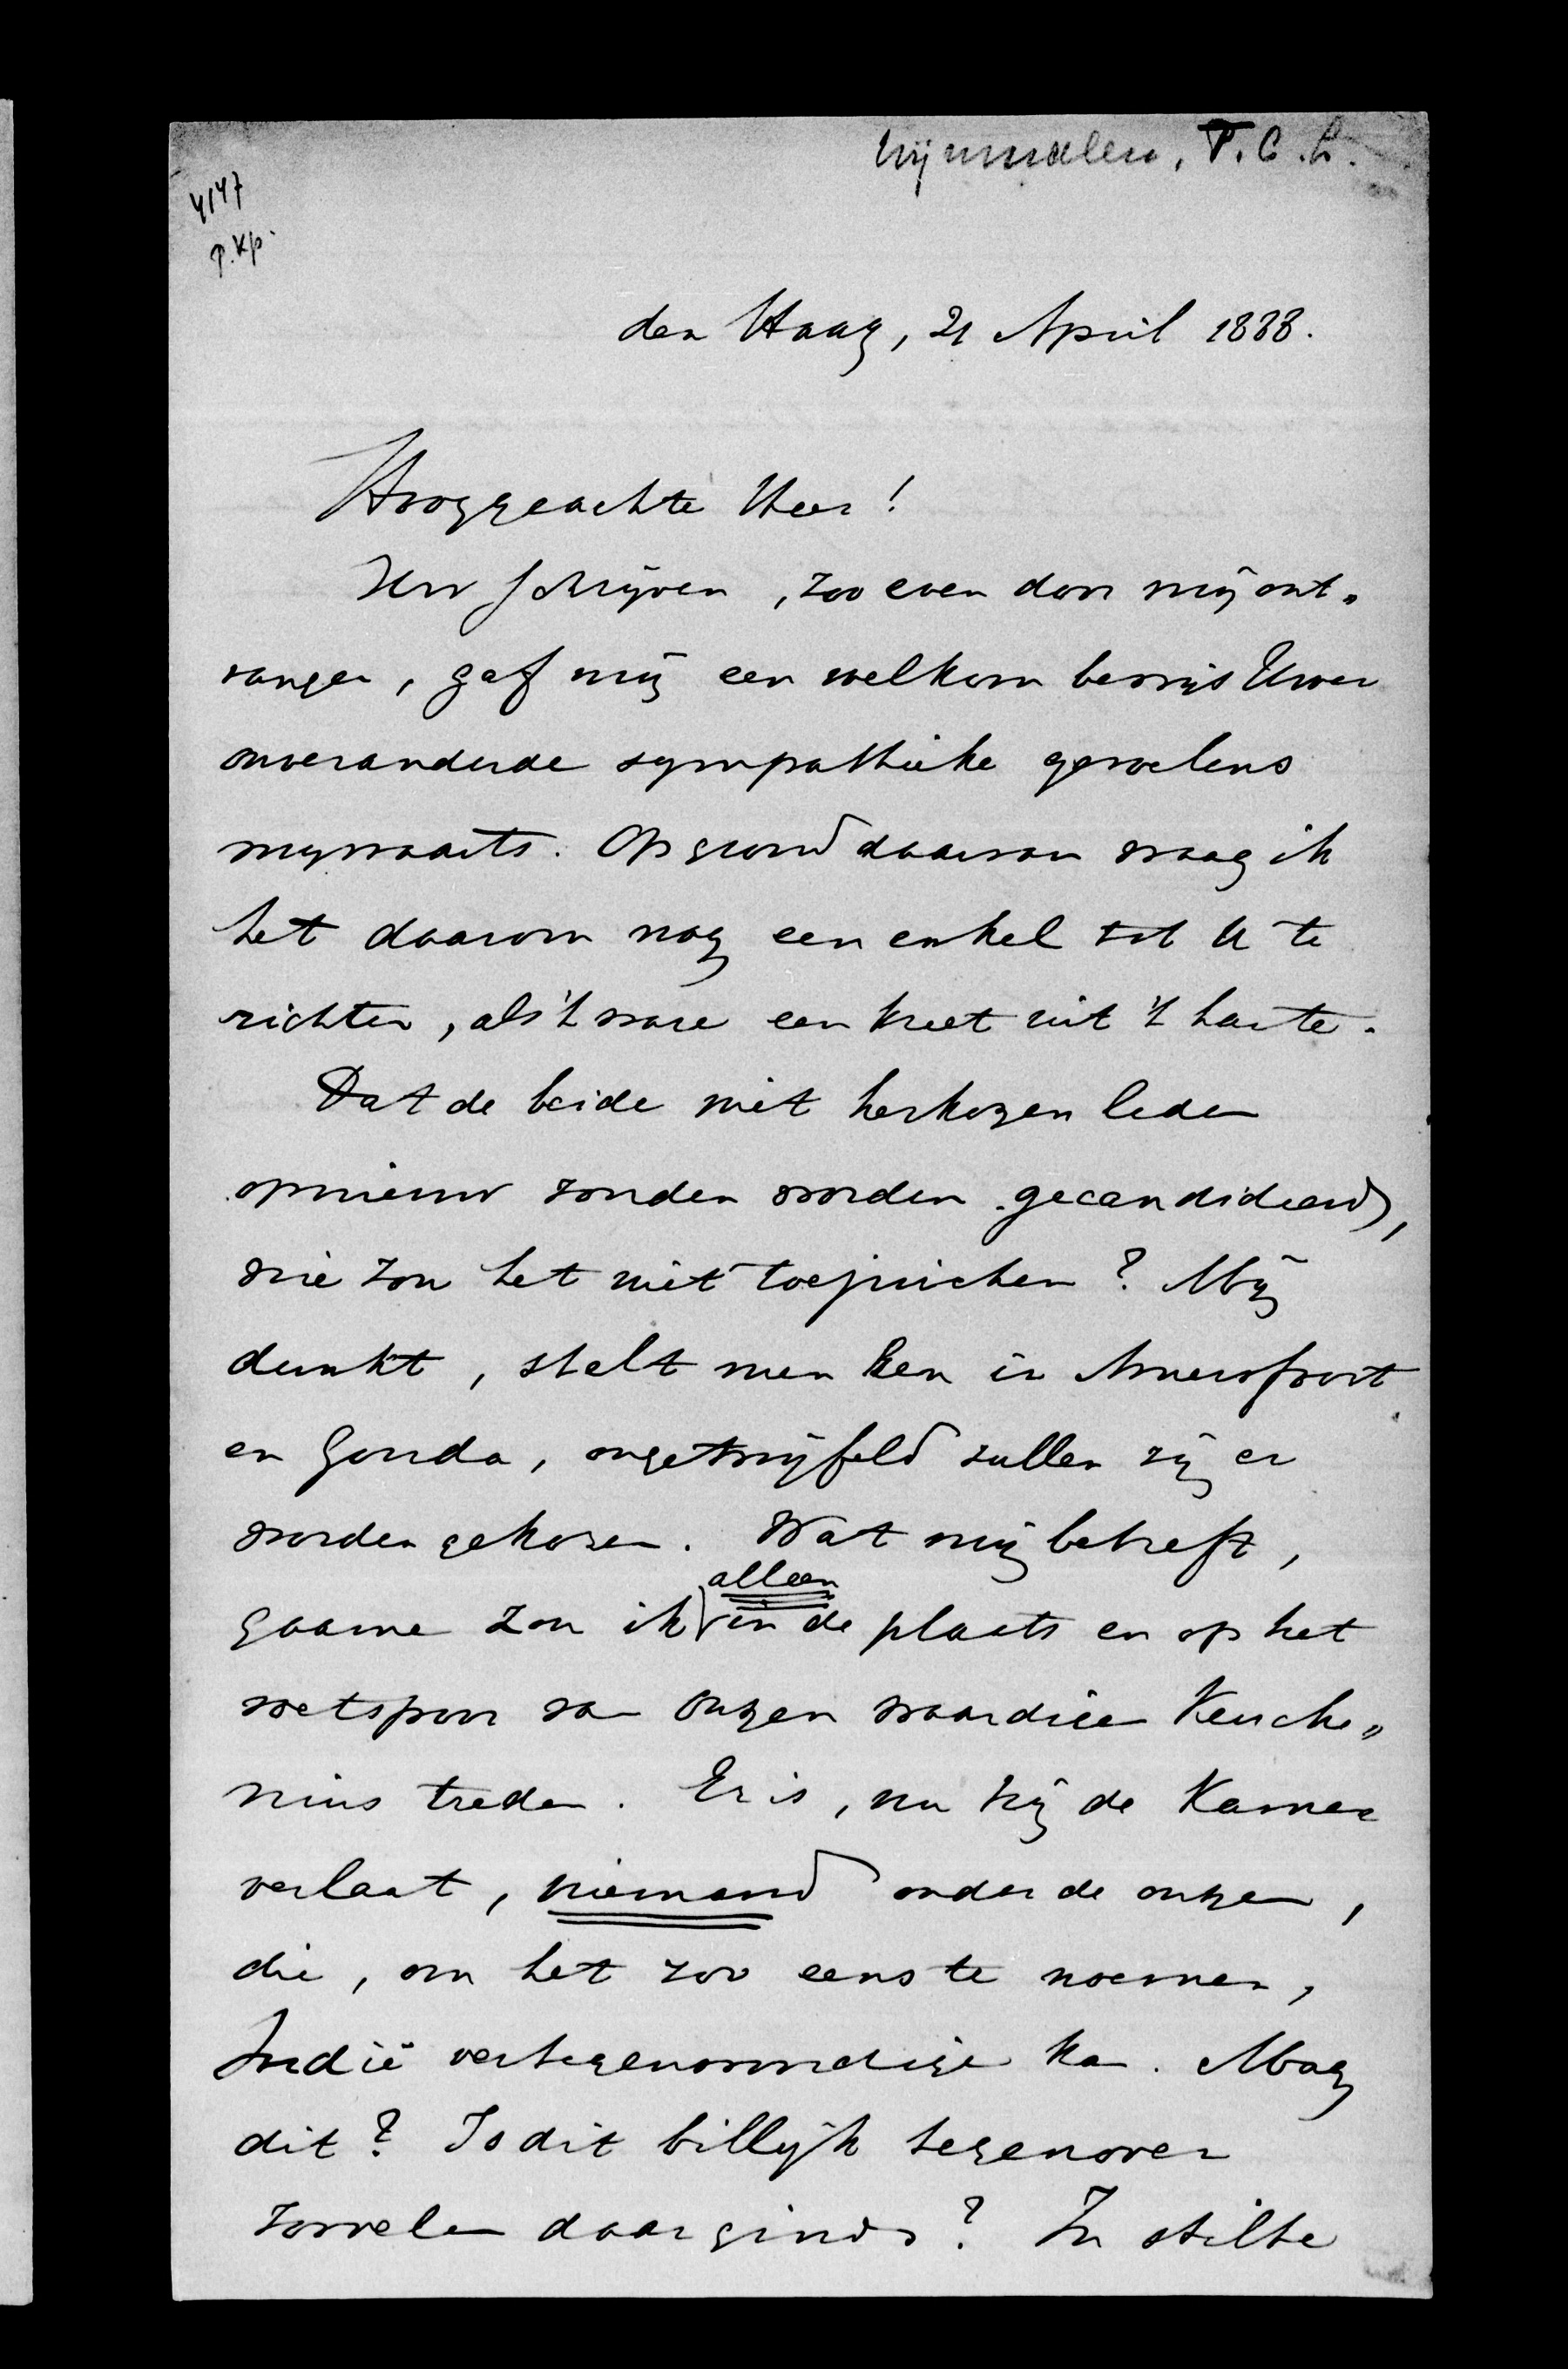 Wijnmalen, T.C.L.
4147
P.Kp.
den Haag, 21 April 1888.
Hooggeachte Heer!
Uw schrijven, zoo even door mij ont„
vangen, gaf mij een welkom bewijs Uwer
onveranderde sympathieke gevoelens
mijwaarts. Op grond daarvan waag ik
het daarom nog een enkel tot U te
richten, als 't ware een kreet uit 't harte.
Dat de beide niet herkozen leden
opnieuw zouden worden gecandideerd,
wie zou het niet toejuichen? Mij
dunkt, stelt men hen in Amersfoort
en Gouda, ongetwijfeld zullen zij er
worden gekozen. Wat mij betreft,
alleen
gaarne zou ik in de plaats en op het
voetspoor van onzen waardigen Keuche„
nius treden. Er is, nu hij de Kamer
verlaat, niemand onder de onzen,
die, om het zoo eens te noemen,
Indië vertegenwoordigen kan. Mag
dit? Is dit billijk tegenover
zoovelen daarginds? In stilte